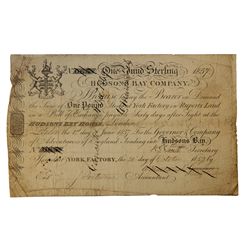 One Pound Sterling 1857
HUDSONS BAY COMPANY.
I Promise to pay the Bearer on Demand
the Sum of One Pound at York Factory in Ruperts Land
in a Bill of Exchange payable Sixty days after Sight at the
HUDSONS BAY HOUSE London
London the 1st day of June 1857 For the Governor & Company
of Adventurers of England Trading into Hudsons Bay.
Secretary
YORK FACTORY, the 20 day of October 1857 by
Accountant